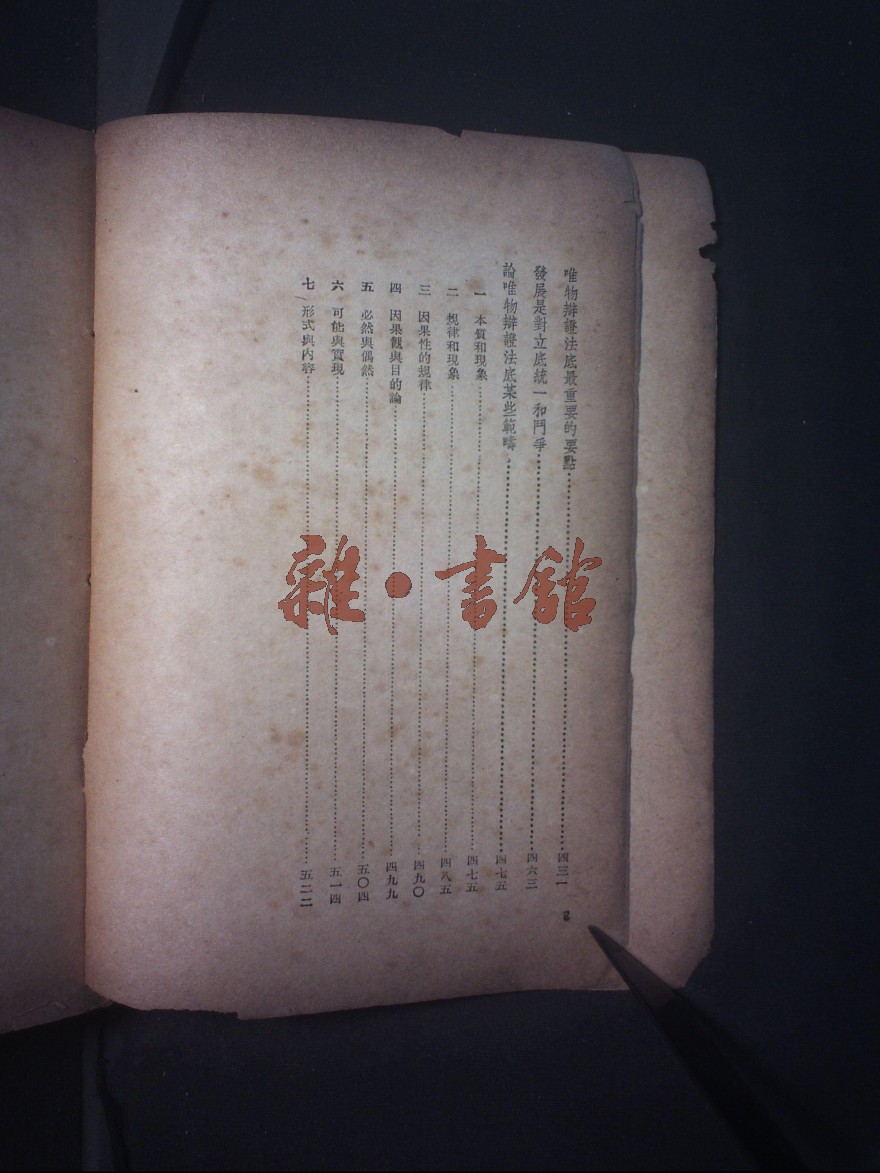 唯物辯證法底最重要的要點……四三一
發展是對立底統一和鬥爭……四六三
論唯物辯證法底某些範疇……四七五
一 本質和現象……四七五
二 規律和現象……四八五
三 因果性的規律……四九〇
四 因果觀與目的論……四九九
五 必然與偶然……五〇四
六 可能與實現……五一四
七 形式與內容……五二二
雜·書館